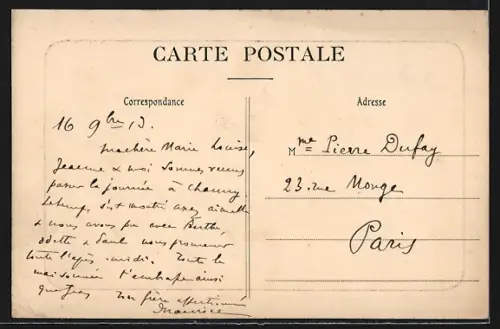 CARTE POSTALE
Correspondance
Adresse
16 9bre 13.
Ma chère Marie Louise,
Jeanne & moi sommes venus
passer la journée à Chauny.
Le temps s'est montré assez aimable
& nous avons pu avec Berthe,
Odette & Paul nous promener
toute l'après-midi. Toute la
maisonnée t'embrasse ainsi
que
Ton frère affectionné
Maurice
Mme Pierre Dufay
23 rue Monge
Paris